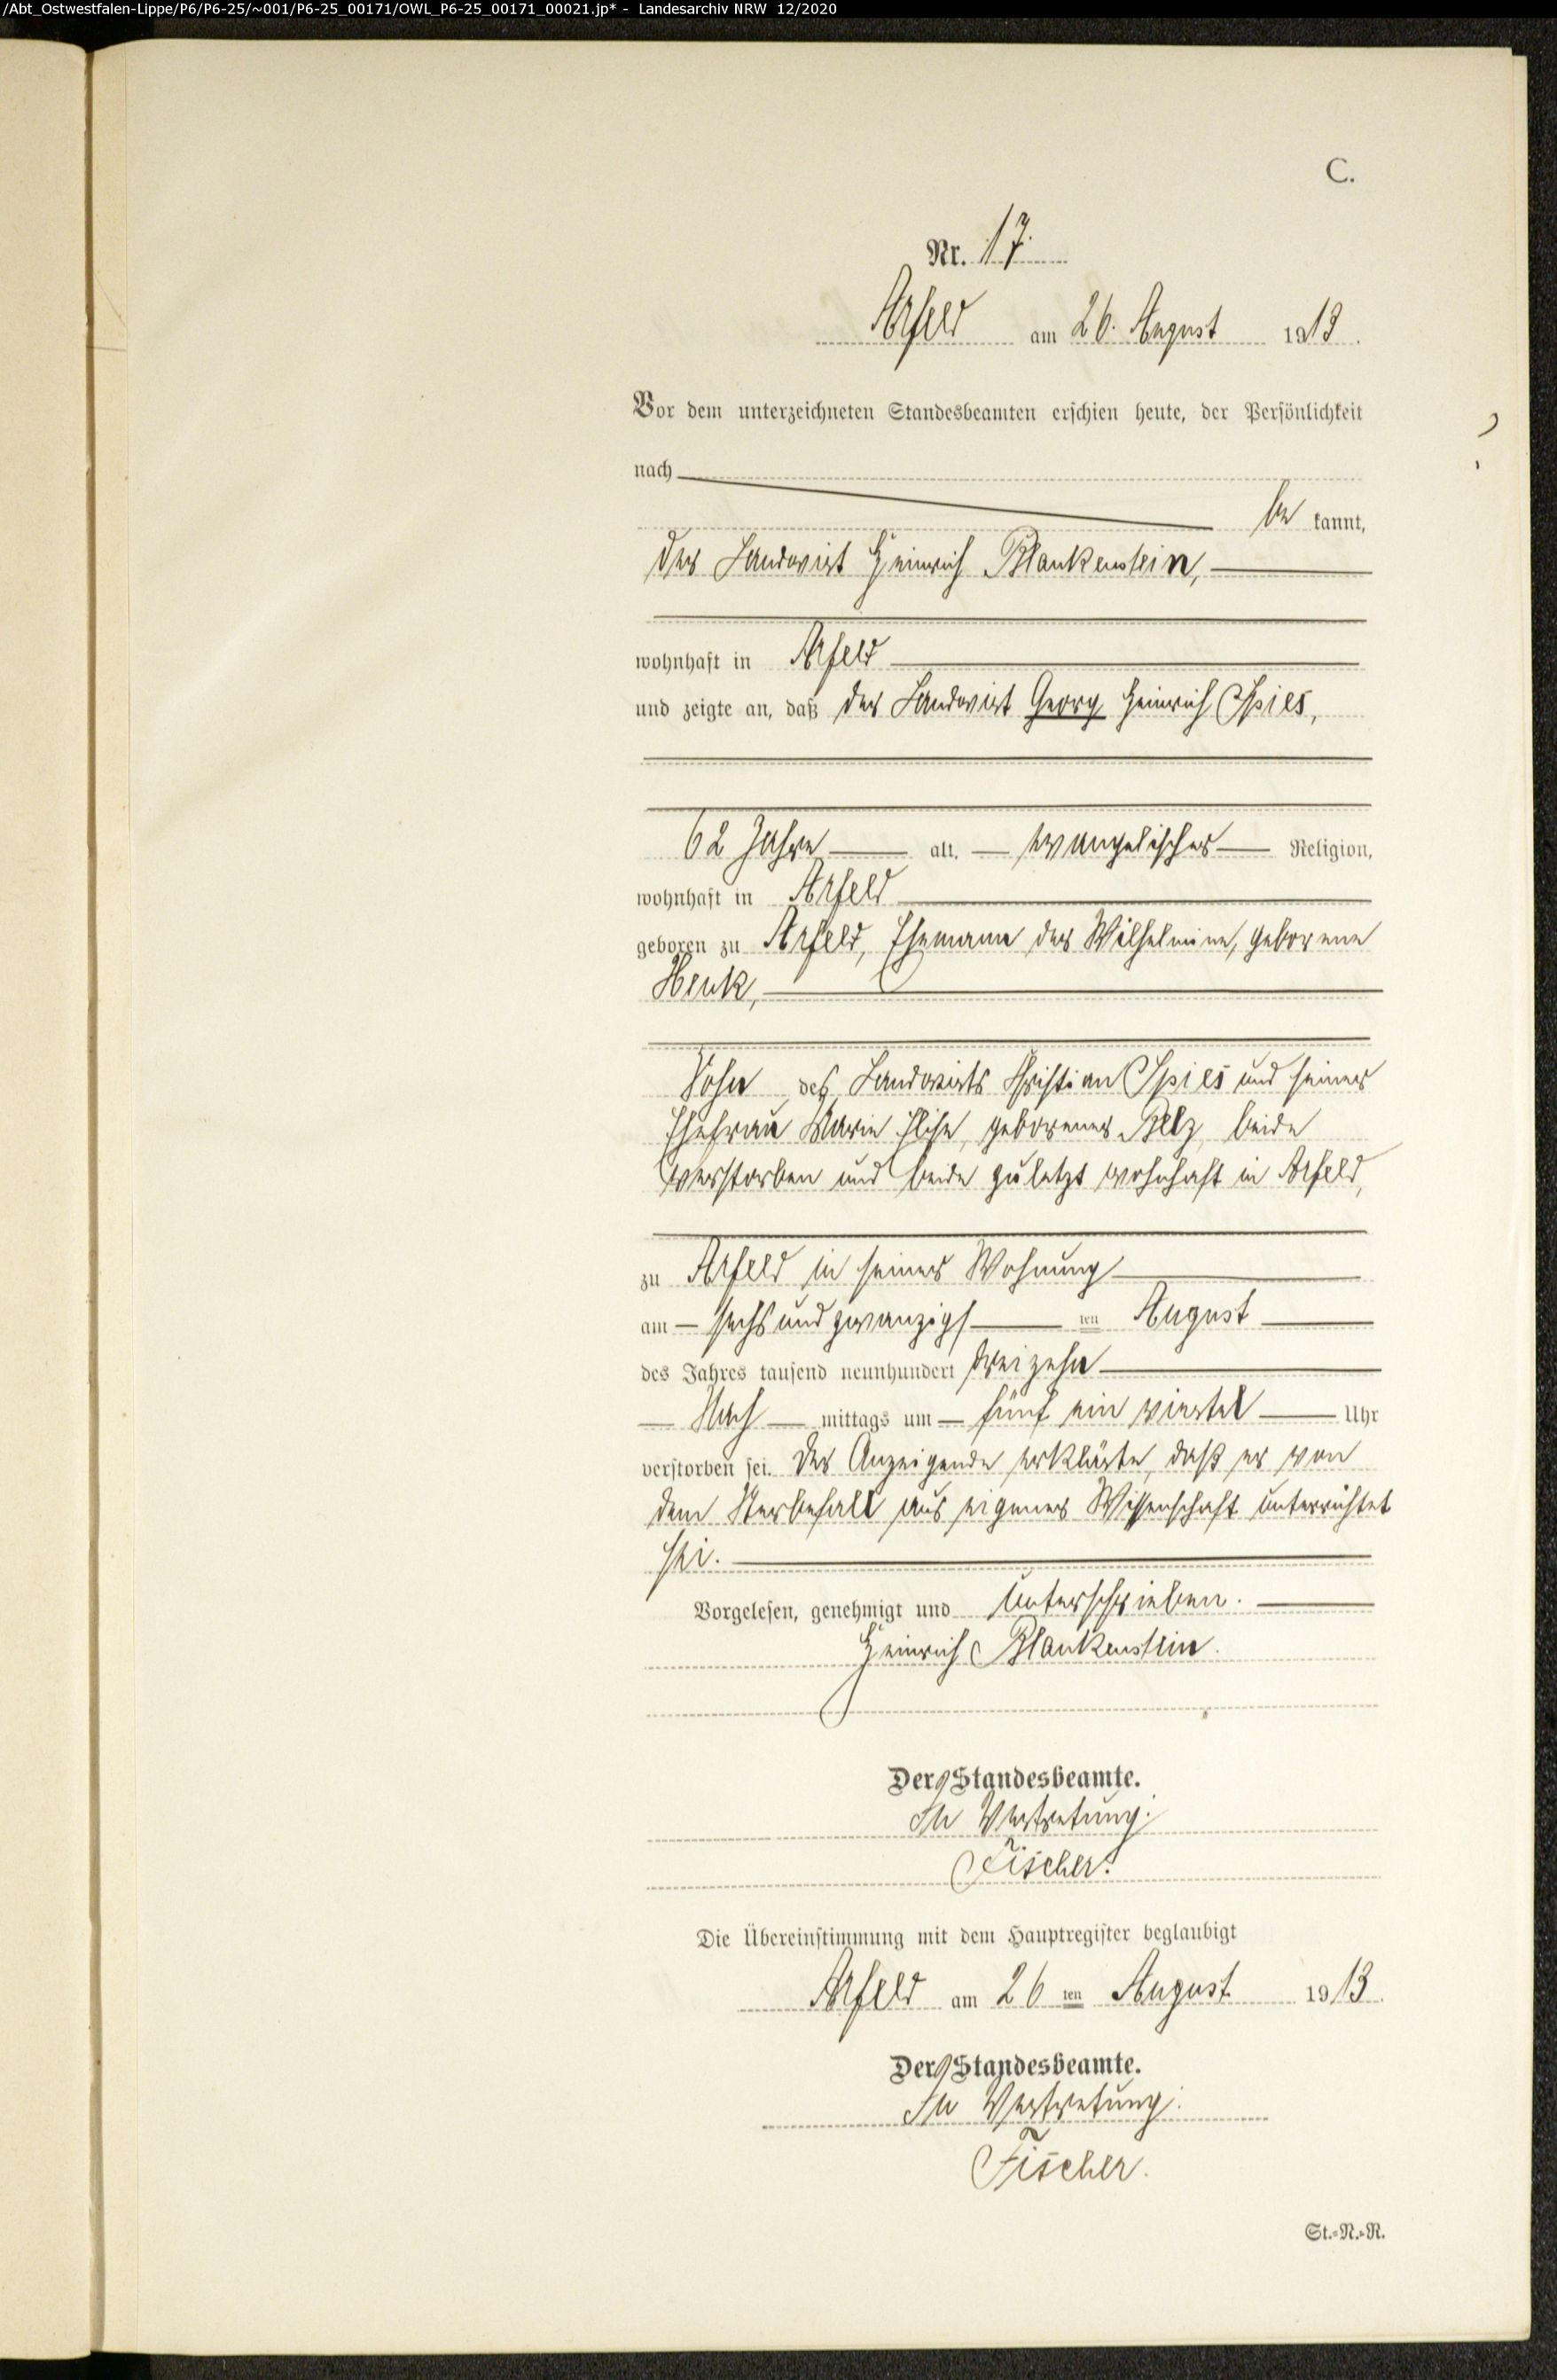 /Abt_Ostwestfalen-Lippe/P6/P6-25/~001/P6-25_00171/OWL_P6-25_00171_00021.jp* - Landesarchiv NRW 12/2020
C.
Nr. 17.
Arfeld am 26. August 1913.
Vor dem unterzeichneten Standesbeamten erschien heute, der Persönlichkeit
nach
be kannt,
der Landwirt Heinrich Blankenstein,
wohnhaft in Arfeld
und zeigte an, daß der Landwirt Georg Heinrich Spies,
62 Jahre alt, evangelischer Religion,
wohnhaft in Arfeld
geboren zu Arfeld, Ehemann der Wilhelmine, geborene
Henk,
Sohn des Landwirts Christian Spies und seiner
Ehefrau Marie Elise, geborener Belz, beide
verstorben und beide zuletzt wohnhaft in Arfeld,
zu Arfeld in seiner Wohnung
am sechsundzwanzigs ten August
des Jahres tausend neunhundert dreizehn
Nach mittags um fünf ein viertel Uhr
verstorben sei. Der Anzeigende erklärte, daß er von
dem Sterbefall aus eigener Wissenschaft unterrichtet
sei.
Vorgelesen, genehmigt und unterschrieben.
Heinrich Blankenstein.
Der Standesbeamte.
In Vertretung:
Fischer.
Die Übereinstimmung mit dem Hauptregister beglaubigt
Arfeld am 26 ten August 1913.
Der Standesbeamte.
In Vertretung:
Fischer.
St.=N.=R.